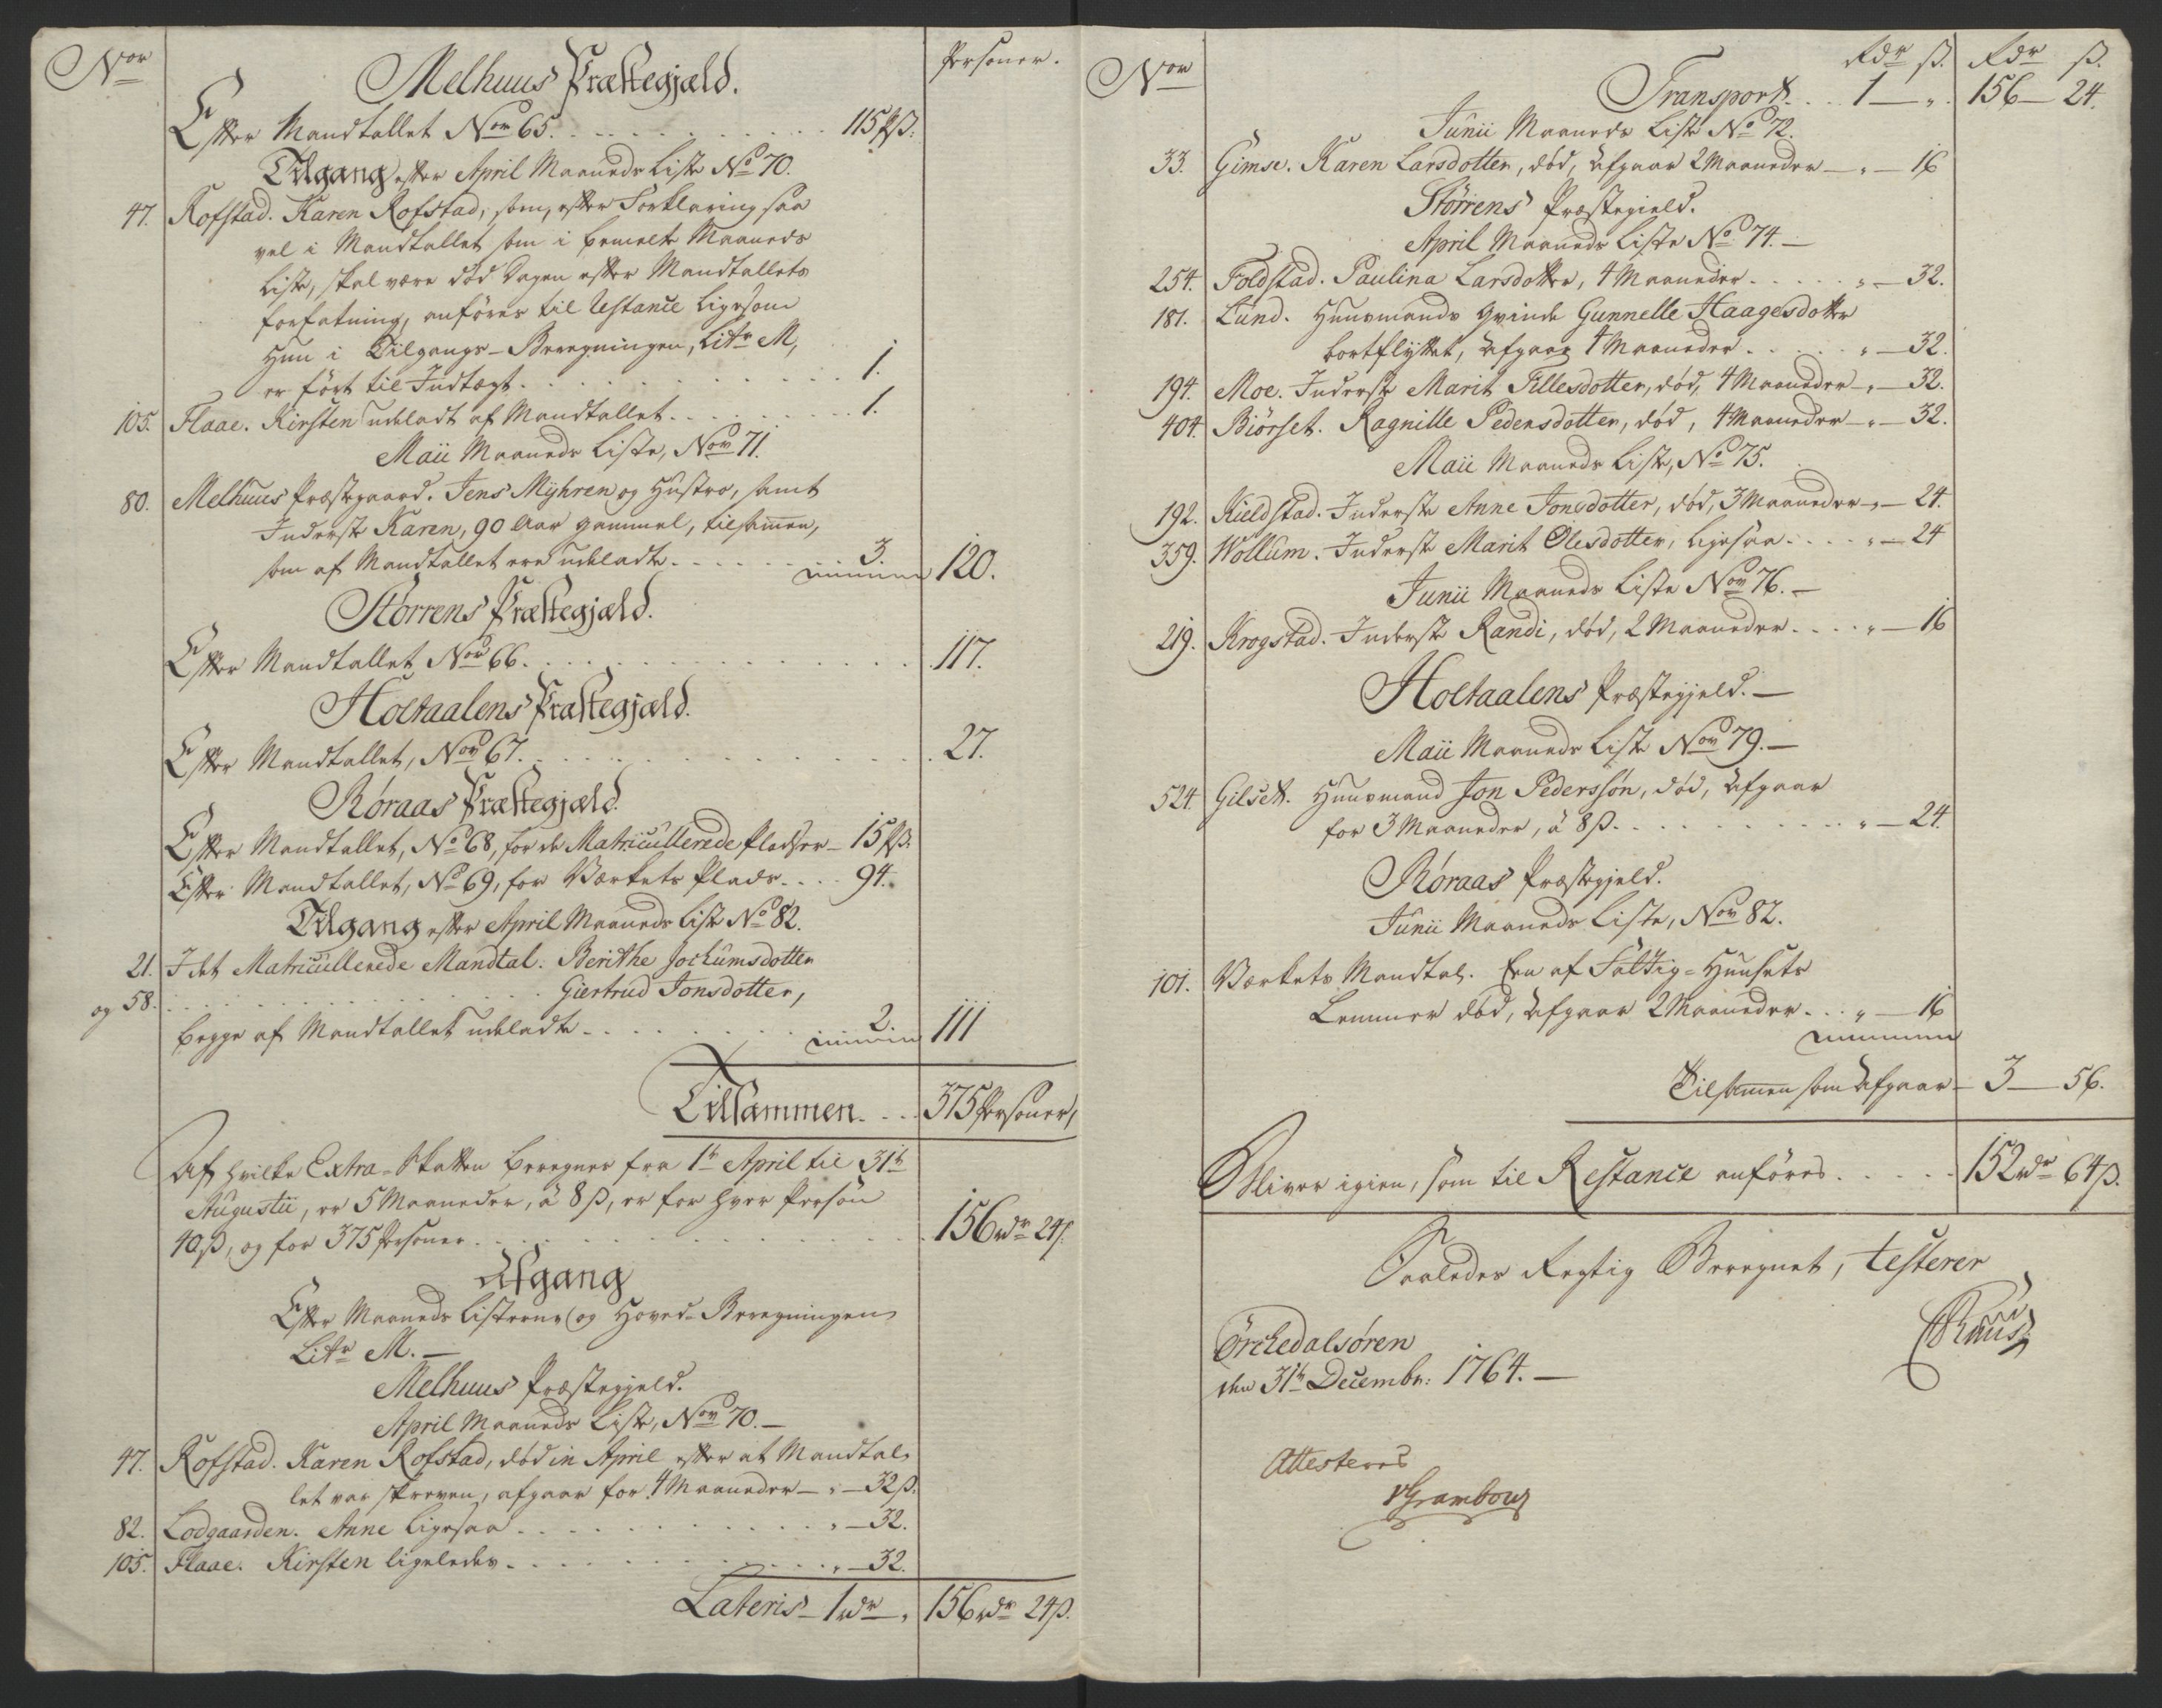 Nor
Personer.
Melhuus Præstegjæld.
Efter Mandtallet Nor 65. 115 ps:
Tilgang efter April Maaneds Liste No 70.
47. Rofstad. Karen Rofstad, som, efter Forklaring saa
vel i Mandtallet som i bemelte Maaneds
Liste, skal være død Dagen efter Mandtallets
forfatning, anføres til Restance ligesom
Hun i Tilgangs-Beregningen, Litr M,
er ført til Indtægt. 1.
105. Flaae. Kirsten udeladt af Mandtallet. 1.
Maii Maaneds Liste, Nor 71.
80. Melhuus Præstegaard. Jens Myhren og Hustro, samt
Inderste Karen, 90 Aar gammel, tilsamen,
som af Mandtallet ere udeladte. 3. 120.
Størrens Præstegjæld.
Efter Mandtallet Nor 66. 117.
Holtaalens Præstegjæld.
Efter Mandtallet, Nor 67. 27.
Røraas Præstegjæld.
Efter Mandtallet, No 68, for de Matricullerede Pladser 15 ps:
Efter Mandtallet, No 69, for Værkets Plads. 94.
Tilgang efter April Maaneds Liste No 82.
21. I det Matricullerede Mandtal. Berithe Jochumsdotter
og 58. Giertrud Jonsdotter,
begge af Mandtallet udeladte. 2. 111
Tilsammen. 375 Personer,
Af hvilke Extra-Skatten beregnes fra 1te April til 31te
Augustii, er 5 Maaneder, à 8 ß, er for hver Person
40 ß, og for 375 Personer. 156 rdr 24 ß.
Afgang
Efter Maaneds Listerne og Hoved-Beregningen
Litr M.
Melhuus Præstegjeld.
April Maaneds Liste, Nor 70.
47. Rofstad. Karen Rofstad, død in April efter at Mandtal-
let var skreven, afgaar for 4 Maaneder - " - 32 ß.
82. Lodgaarden. Anne ligesaa. " - 32.
105. Flaae. Kirsten ligeledes. " - 32.
Lateris 1 rdr " 156 rdr 24 ß.
Nor
Rdr ß. Rdr ß.
Transport. 1 - " . 156 - 24.
Junii Maaneds Liste No 72.
33. Gimse. Karen Larsdotter, død, Afgaar 2 Maaneder - " - 16
Størrens Præstegield.
April Maaneds Liste No 74.
254. Foldstad. Paulina Larsdotter, 4 Maaneder. " - 32.
181. Lund. Huusmands Qvinde Gunnelle Haagesdotter
bortflyttet, Afgaar 4 Maaneder. " - 32.
194. Moe. Inderste Marit Tillesdotter, død, 4 Maaneder - " - 32.
404. Biørset. Ragnille Pedersdotter, død, 4 Maaneder - " - 32.
Maii Maaneds Liste, No 75.
192. Kieldstad. Inderste Anne Jonsdotter, død, 3 Maaneder - " - 24.
359. Wollum. Inderste Marit Olesdotter, ligesaa. " - 24
Junii Maaneds Liste Nor 76.
219. Krogstad. Inderste Randi, død, 2 Maaneder. " - 16
Holtaalens Præstegjeld.
Maii Maaneds Liste Nor 79.
524. Gilset. Huusmand Jon Pederssøn, død, Afgaar
for 3 Maaneder, à 8 ß. " - 24.
Røraas Præstegjeld.
Junii Maaneds Liste, Nor 82.
101. Værkets Mandtal. Een af Fattig-Huusets
Lemmer død, Afgaar 2 Maaneder. " - 16
Tilsamen som Afgaar 3 - 56.
Bliver igien, som til Restance anføres. 152 rdr 64 ß.
Saaledes Regtig Beregnet, testerer
Ørchedalsøren
den 31te Decembr: 1764.
Attesteres